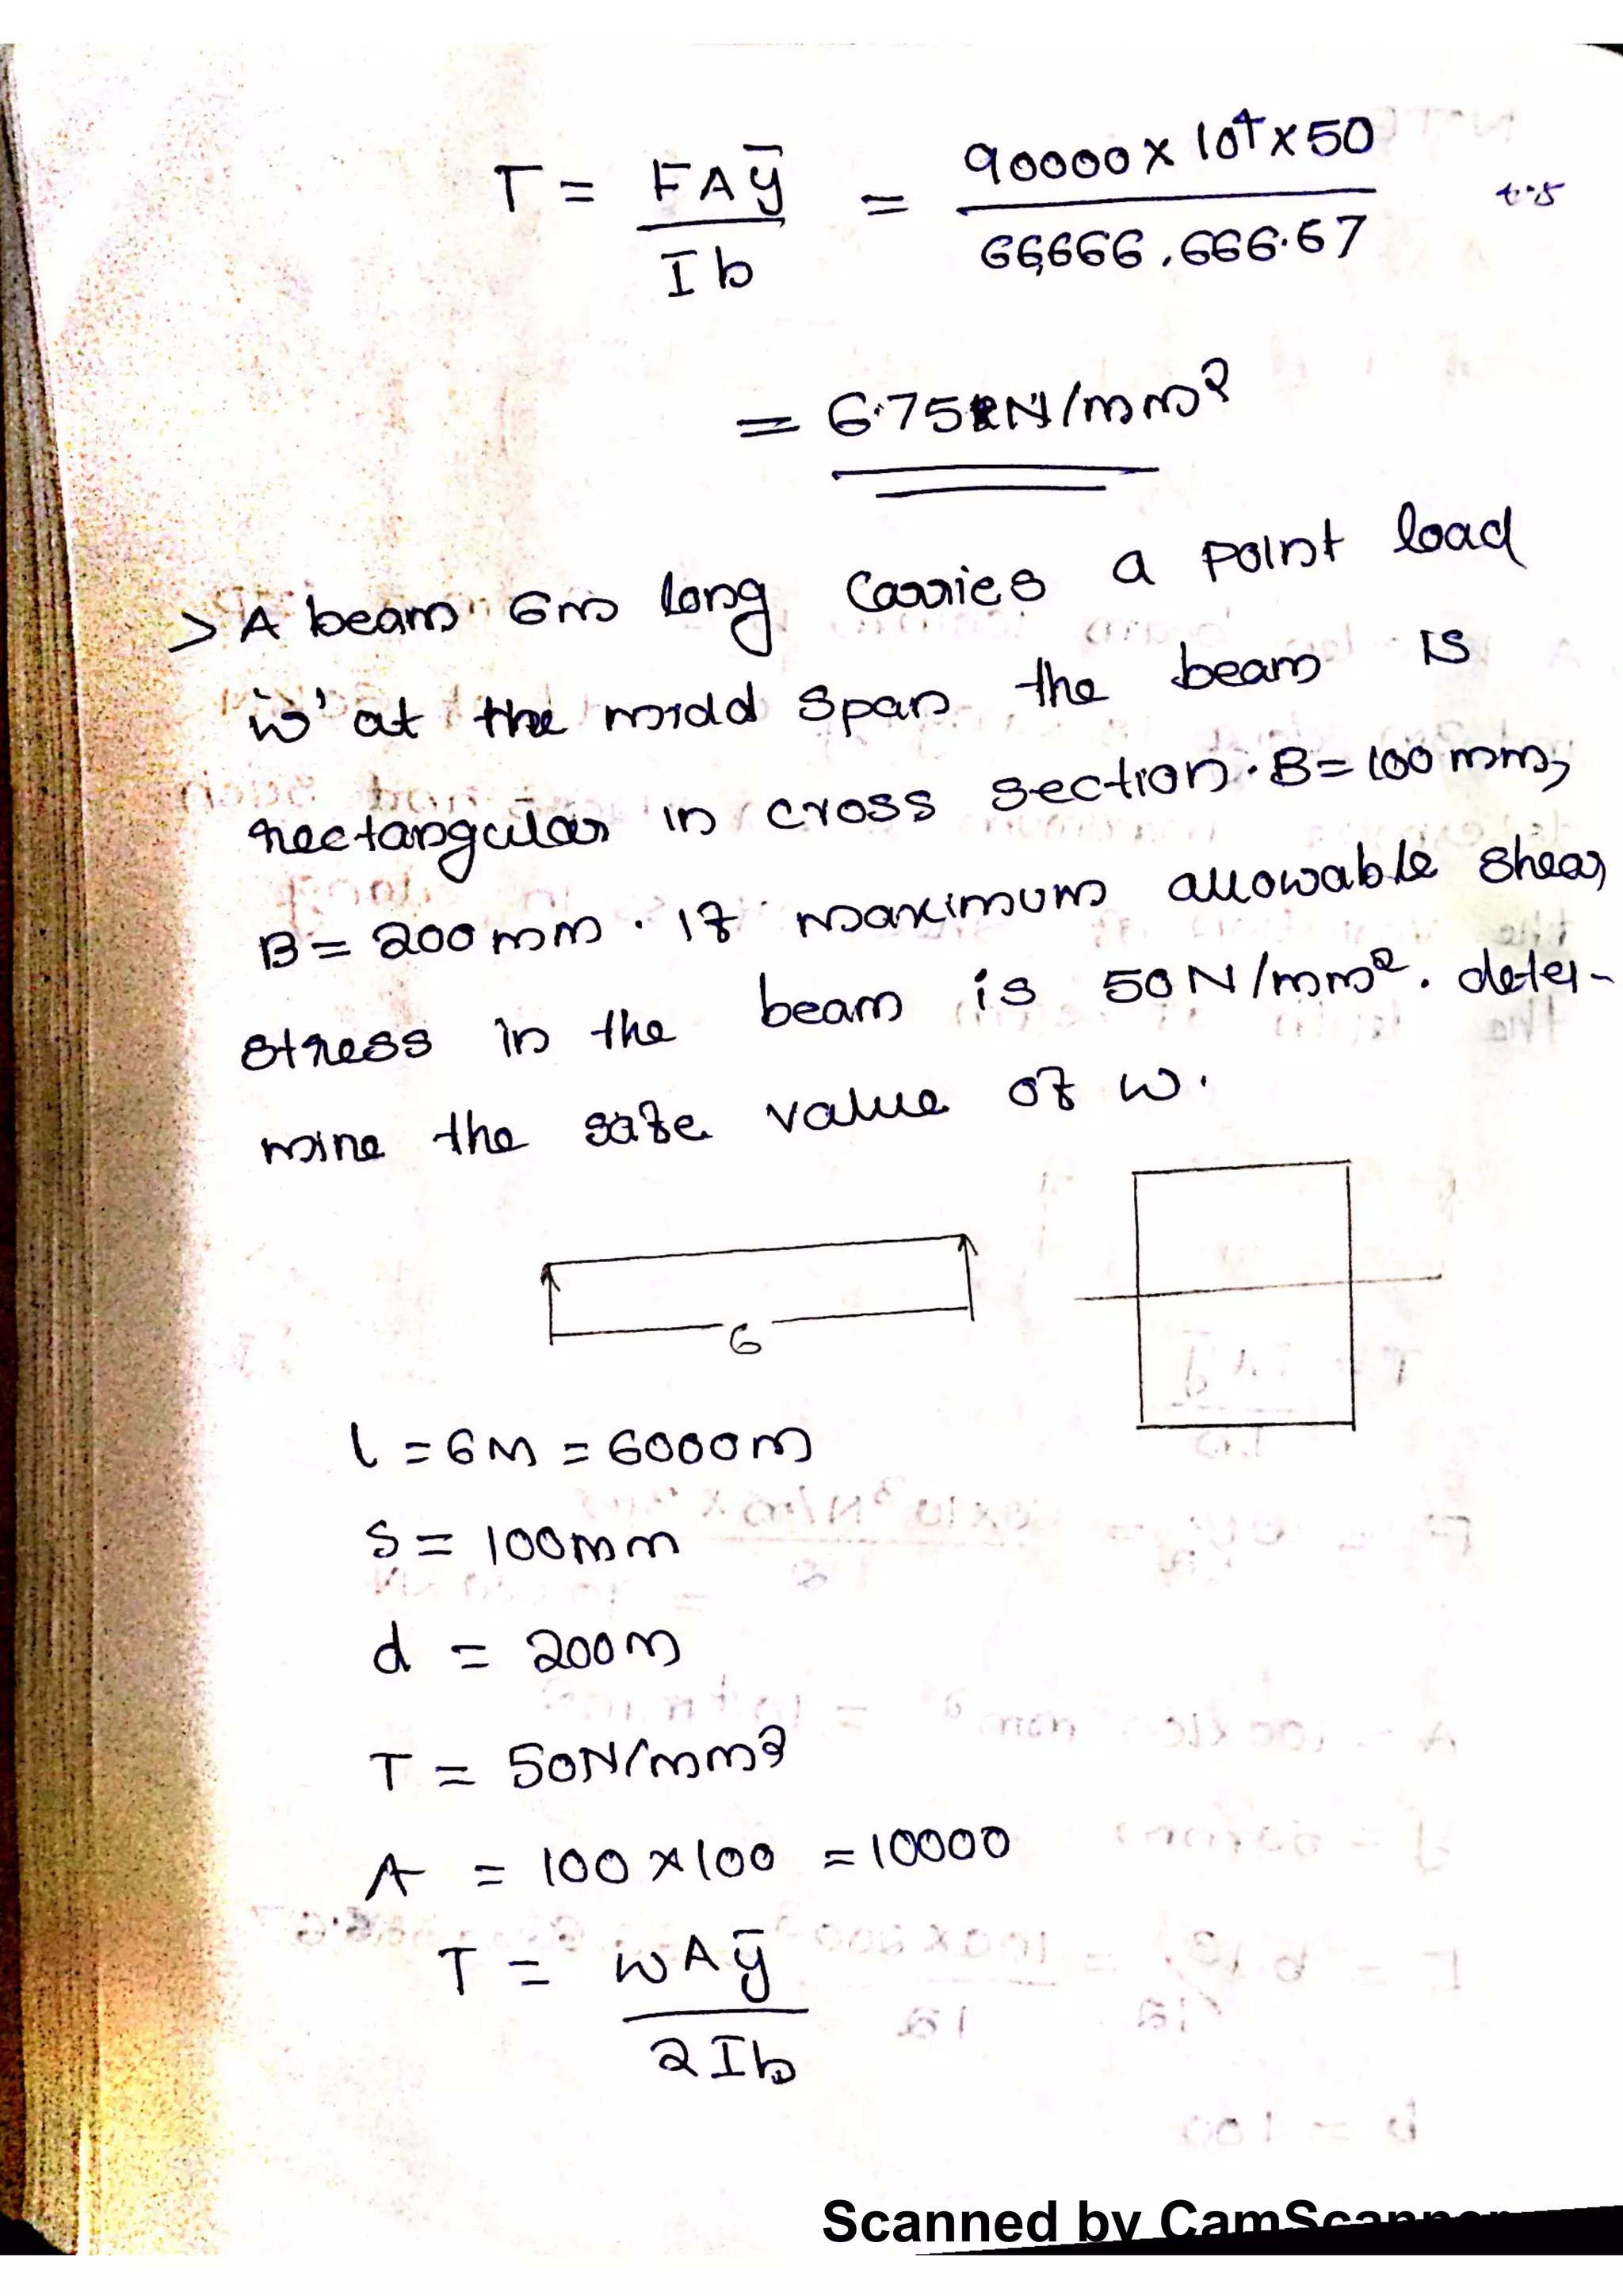 T = FAȳ / Ib = 90000 x 10⁴ x 50 / 66,666.666.67
= 6.75 N/mm²
> A beam 6m long carries a point load
'w' at the midd span the beam is
rectangular in cross section. B = 100 mm,
B = 200 mm. if maximum allowable shear
stress in the beam is 50 N/mm². deter-
mine the safe value of w.
6
l = 6M = 6000m
S = 100mm
d = 200m
T = 50N/mm²
A = 100 x 100 = 10000
T = WAȳ / 2Ib
Scanned by CamScanner